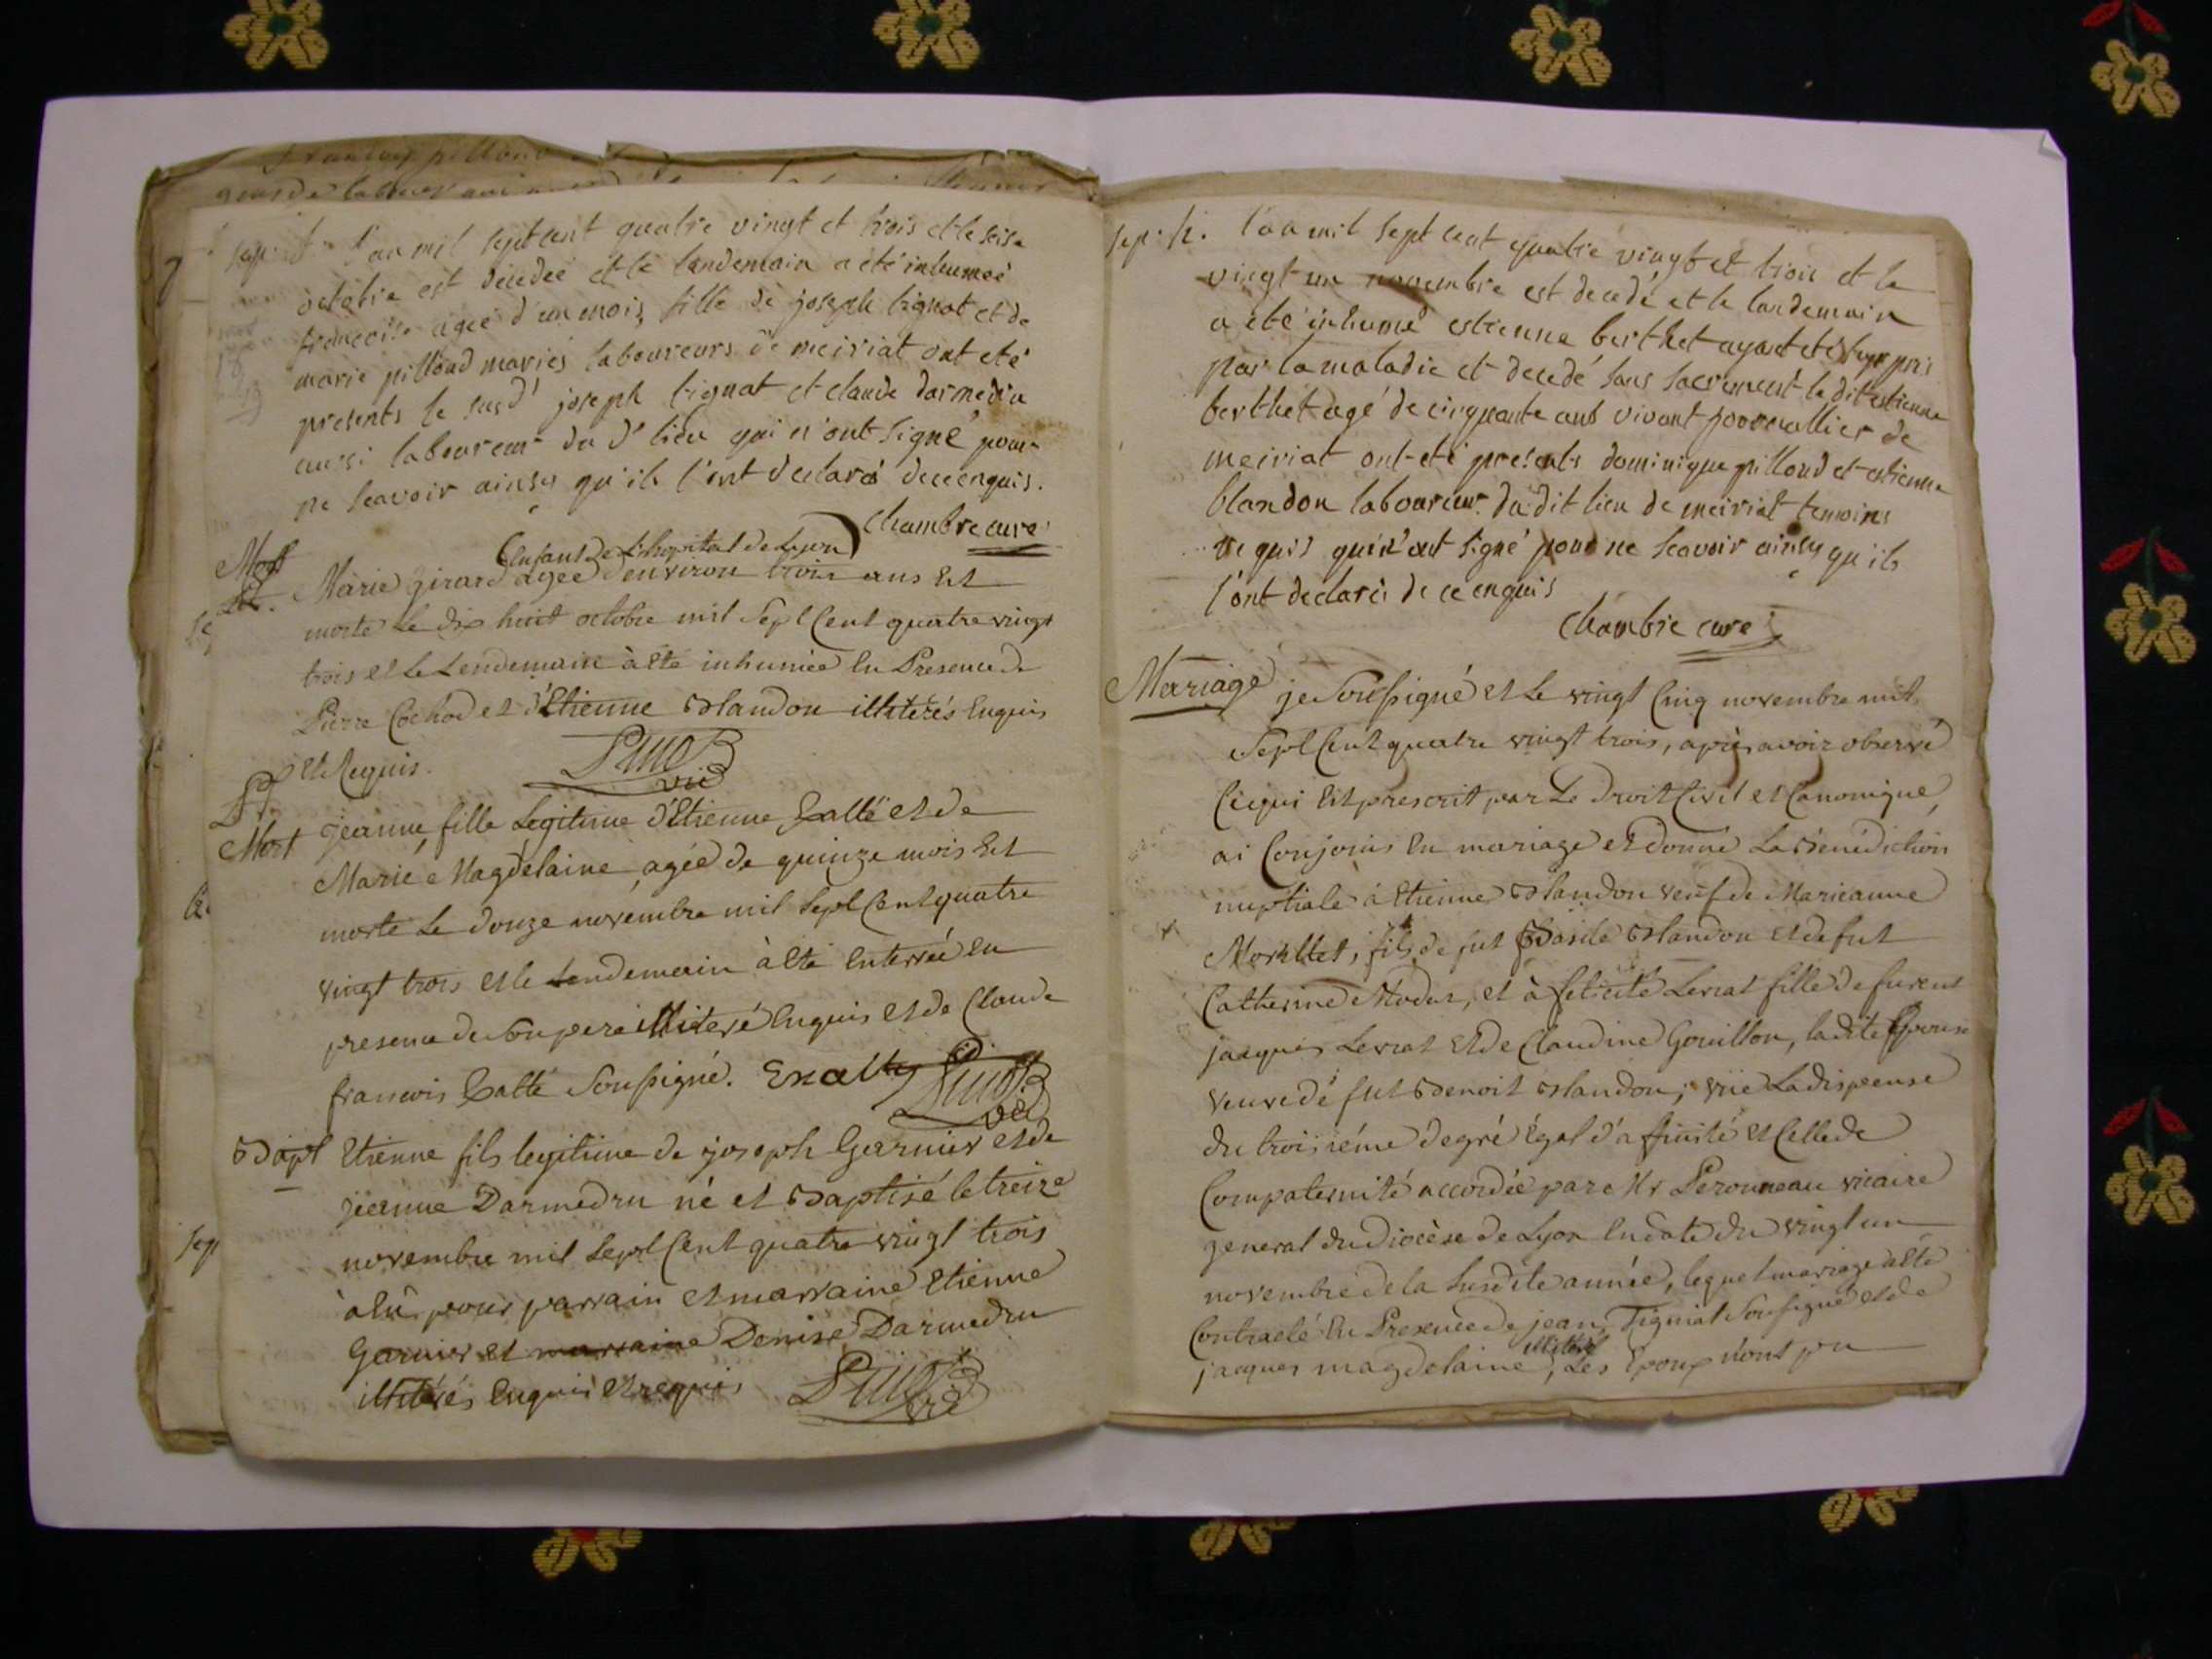 l'an mil sept cent quatre vingt et trois et le seise
octobre est décédeé et le landemain a été inhumeé
francoise ageé d'un mois, fille de joseph tignat et de
marie pilloud mariés laboureurs de meiriat ont eté
presents le susd' joseph tignat et claude darmedru
aussi laboureur du dt lieu qui n'ont signé pour
ne scavoir ainsy qu'ils l'ont declaré de ce enquis.
chambre curé
Mort
(Enfant de l'hopital de Lyon)
Marie girard agée d'environ trois ans Est
morte Le dix huit octobre mil Sept Cent quatre vingt
trois et Le Lendemain à Eté inhumée En Presence de
Pierre Cochod et d'Etienne Blandon illiterés Enquis
et Requis.
vic
Mort
jeanne, fille Legitime d'Etienne Exalté et de
Marie Magdelaine, agée de quinze mois Est
morte Le douze novembre mil Sept Cent quatre
vingt trois et le Lendemain à Eté Enterrée En
presence de Son pere illiteré Enquis et de Claude
francois Exalté Soussigné. Exalty
vic
Bapt
Etienne fils legitime de joseph Garnier et de
jeanne Darmedru né et Baptisé le treize
novembre mil Sept Cent quatre vingt trois
à Eû pour parrain et marraine Etienne
Garnier et marraine Denise Darmedru
illiterés Enquis et requis
vic
sep. l'an mil sept cent quatre vingt et trois et le
vingt un novembre est decedé et le landemain
a été inhumé estienne berthet ayant eté surpris
par la maladie et decedé sans sacrement le dit estienne
berthet agé de cinquante ans vivant journallier de
meiriat ont eté presents dominique pilloud et estienne
blandon laboureur du dit lieu de meiriat temoins
requis qui n'ont signé pour ne scavoir ainsy qu'ils
l'ont declaré de ce enquis
chambre curé
Mariage
je Soussigné et Le vingt Cinq novembre mil
Sept Cent quatre vingt trois, après avoir observé
Ce qui Est prescrit par Le Droit Civil et Canonique,
ai Conjoins En mariage et donné La Bénédiction
nuptiale à Etienne Blandon veuf de Marieanne
Morellet, fils de fut Basile Blandon et de fut
Catherine Rodet, et à felicité Levrat fille de furent
jacques Levrat et de Claudine Gouillon, la dite Epouse
veuve de fut Benoit Blandon; vüe La dispense
du troisiéme degré Égal d'affinité et Celle de
Compaternité accordée par Mr Peronneau vicaire
general du Diocèse de Lyon En date du vingt un
novembre de la Susdite année, lequel mariage a Eté
Contracté En Presence de jean Tigniat Soussigné et de
jacques magdelaine illiteré, Les Epoux n'ont pu